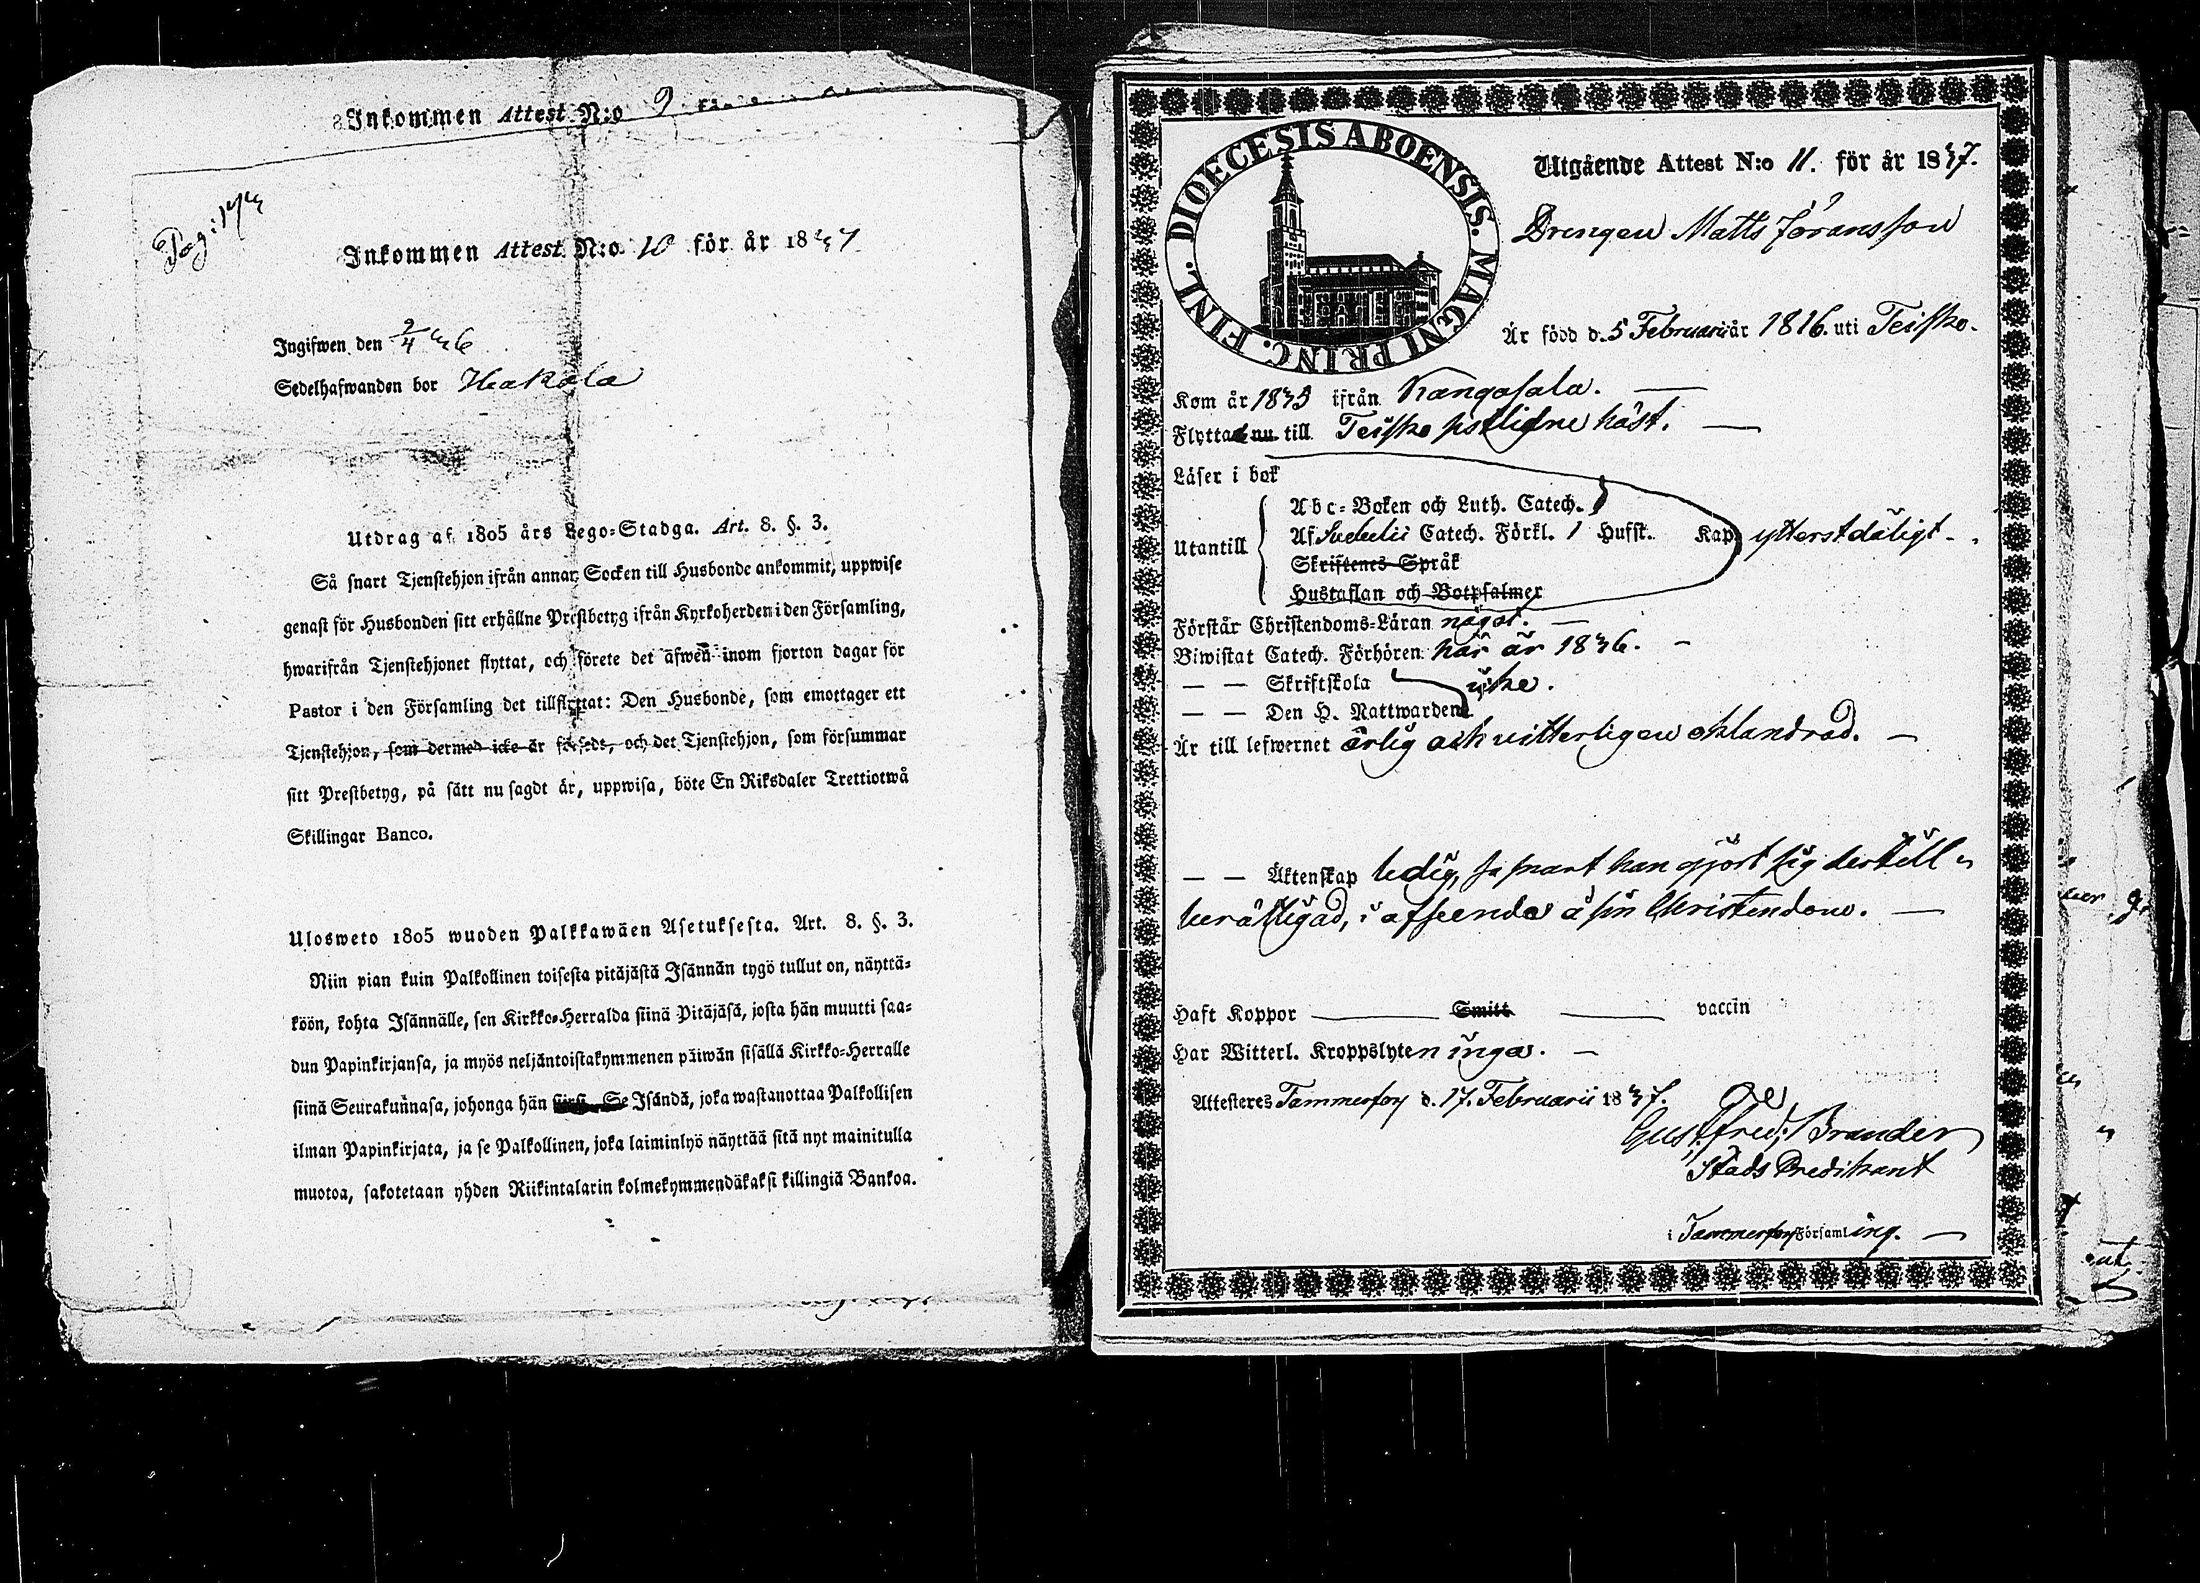 Inkommen Attest N:o 9
Pag: 173
Inkommen Attest N:o 10 för år 1837
Ingifwen den 2/4 36
Sedelhafwanden bor Hakala
Utdrag af 1805 års Lego-Stadga. Art. 8. §. 3.
Så snart Tjenstehjon ifrån annar Socken till Husbonde ankommit, uppwise
genast för Husbonden sitt erhållne Prestbetyg ifrån Kyrkoherden i den Församling,
hwarifrån Tjenstehjonet flyttat, och förete det äfwen inom fjorton dagar för
Pastor i den Församling det tillflyttat: Den Husbonde, som emottager ett
Tjenstehjon, som dermed icke är försedt, och det Tjenstehjon, som försummar
sitt Prestbetyg, på sätt nu sagdt är, uppwisa, böte En Riksdaler Trettiotwå
Skillingar Banco.
Ulosweto 1805 wuoden Palkkawäen Asetuksesta. Art. 8. §. 3.
Niin pian kuin Palkollinen toisesta pitäjästä Isännän tygö tullut on, näyttä-
köön, kohta Isännälle, sen Kirkko-Herralda siinä Pitäjäsä, josta hän muutti saa-
dun Papinkirjansa, ja myös neljäntoistakymmenen päiwän sisällä Kirkko-Herralle
siinä Seurakunnasa, johonga hän siirsi. Se Isändä, joka wastanottaa Palkollisen
ilman Papinkirjata, ja se Palkollinen, joka laiminlyö näyttää sitä nyt mainitulla
muotoa, sakotetaan yhden Riikintalarin kolmekymmendäkaksi killingiä Bankoa.
DIOECESIS ABOENSIS. MAGNI PRINC. FINL.
Utgående Attest N:o 11. för år 1837.
Drengen Matts Jöransson
Är född d. 5 Februarii år 1816. uti Teisko.
Kom år 1835 ifrån Kangasala.
Flyttad nu till Teisko höst.
Läser i bok
Abc-Boken och Luth. Catech.
Utantill Af Svebelii Catech. Förkl. 1 Hufst. Kap. ytterst dåligt
Skriftenes Språk
Hustaflan och Botpsalmer
Förstår Christendoms-Läran något.
Biwistat Catech. Förhören här år 1836.
— — Skriftskola icke.
— — Den H. Nattwarden
Är till lefwernet ärlig och vitterligen oklandrad.
— — Äktenskap ledig, så snart han gjort sig dertill
berättigad, i afseende å sin Christendom.
Haft Koppor Smitt vaccin
Har Witterl. Kroppslyten inga.
Attesteres Tammerfors d. 17. Februarii 1837.
Gust. Fred: Brander
Stads Predikant
i Tammerfors Församling.